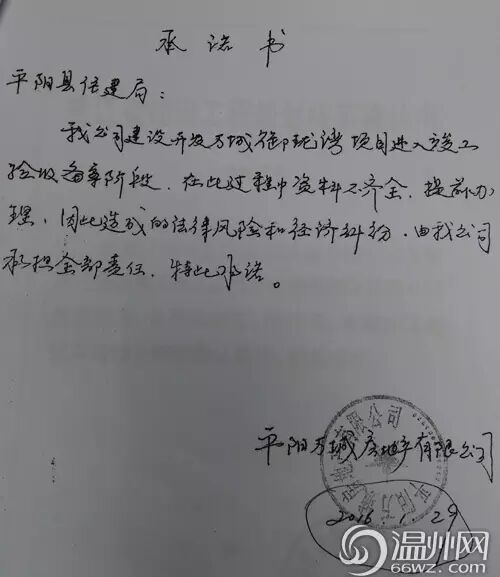 承诺书
平阳县住建局：
我公司建设开发万城御珑湾项目进入竣工
验收备案阶段，在此过程中资料不齐全，提前办
理，因此造成的法律风险和经济纠纷，由我公司
承担全部责任，特此承诺。
平阳万城房地产有限公司
2016.1.29
温州网
66wz.com